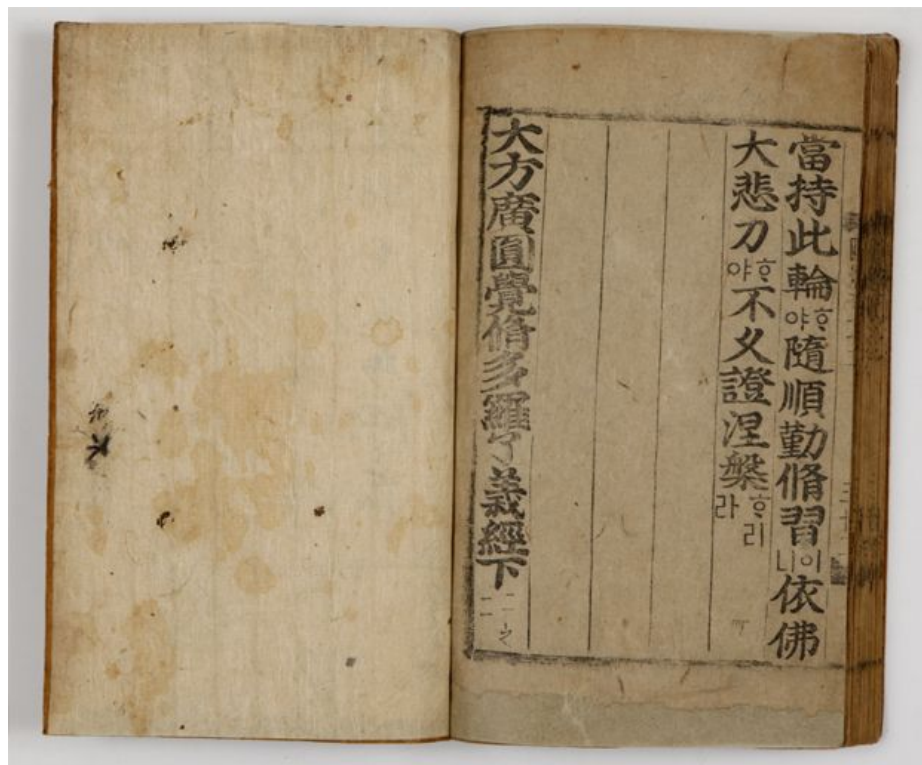 當持此輪ᄒᆞ야隨順勤脩習이니依佛
大悲力ᄒᆞ야不乆證涅槃ᄒᆞ리라
大方廣圓覺脩多羅了義經下